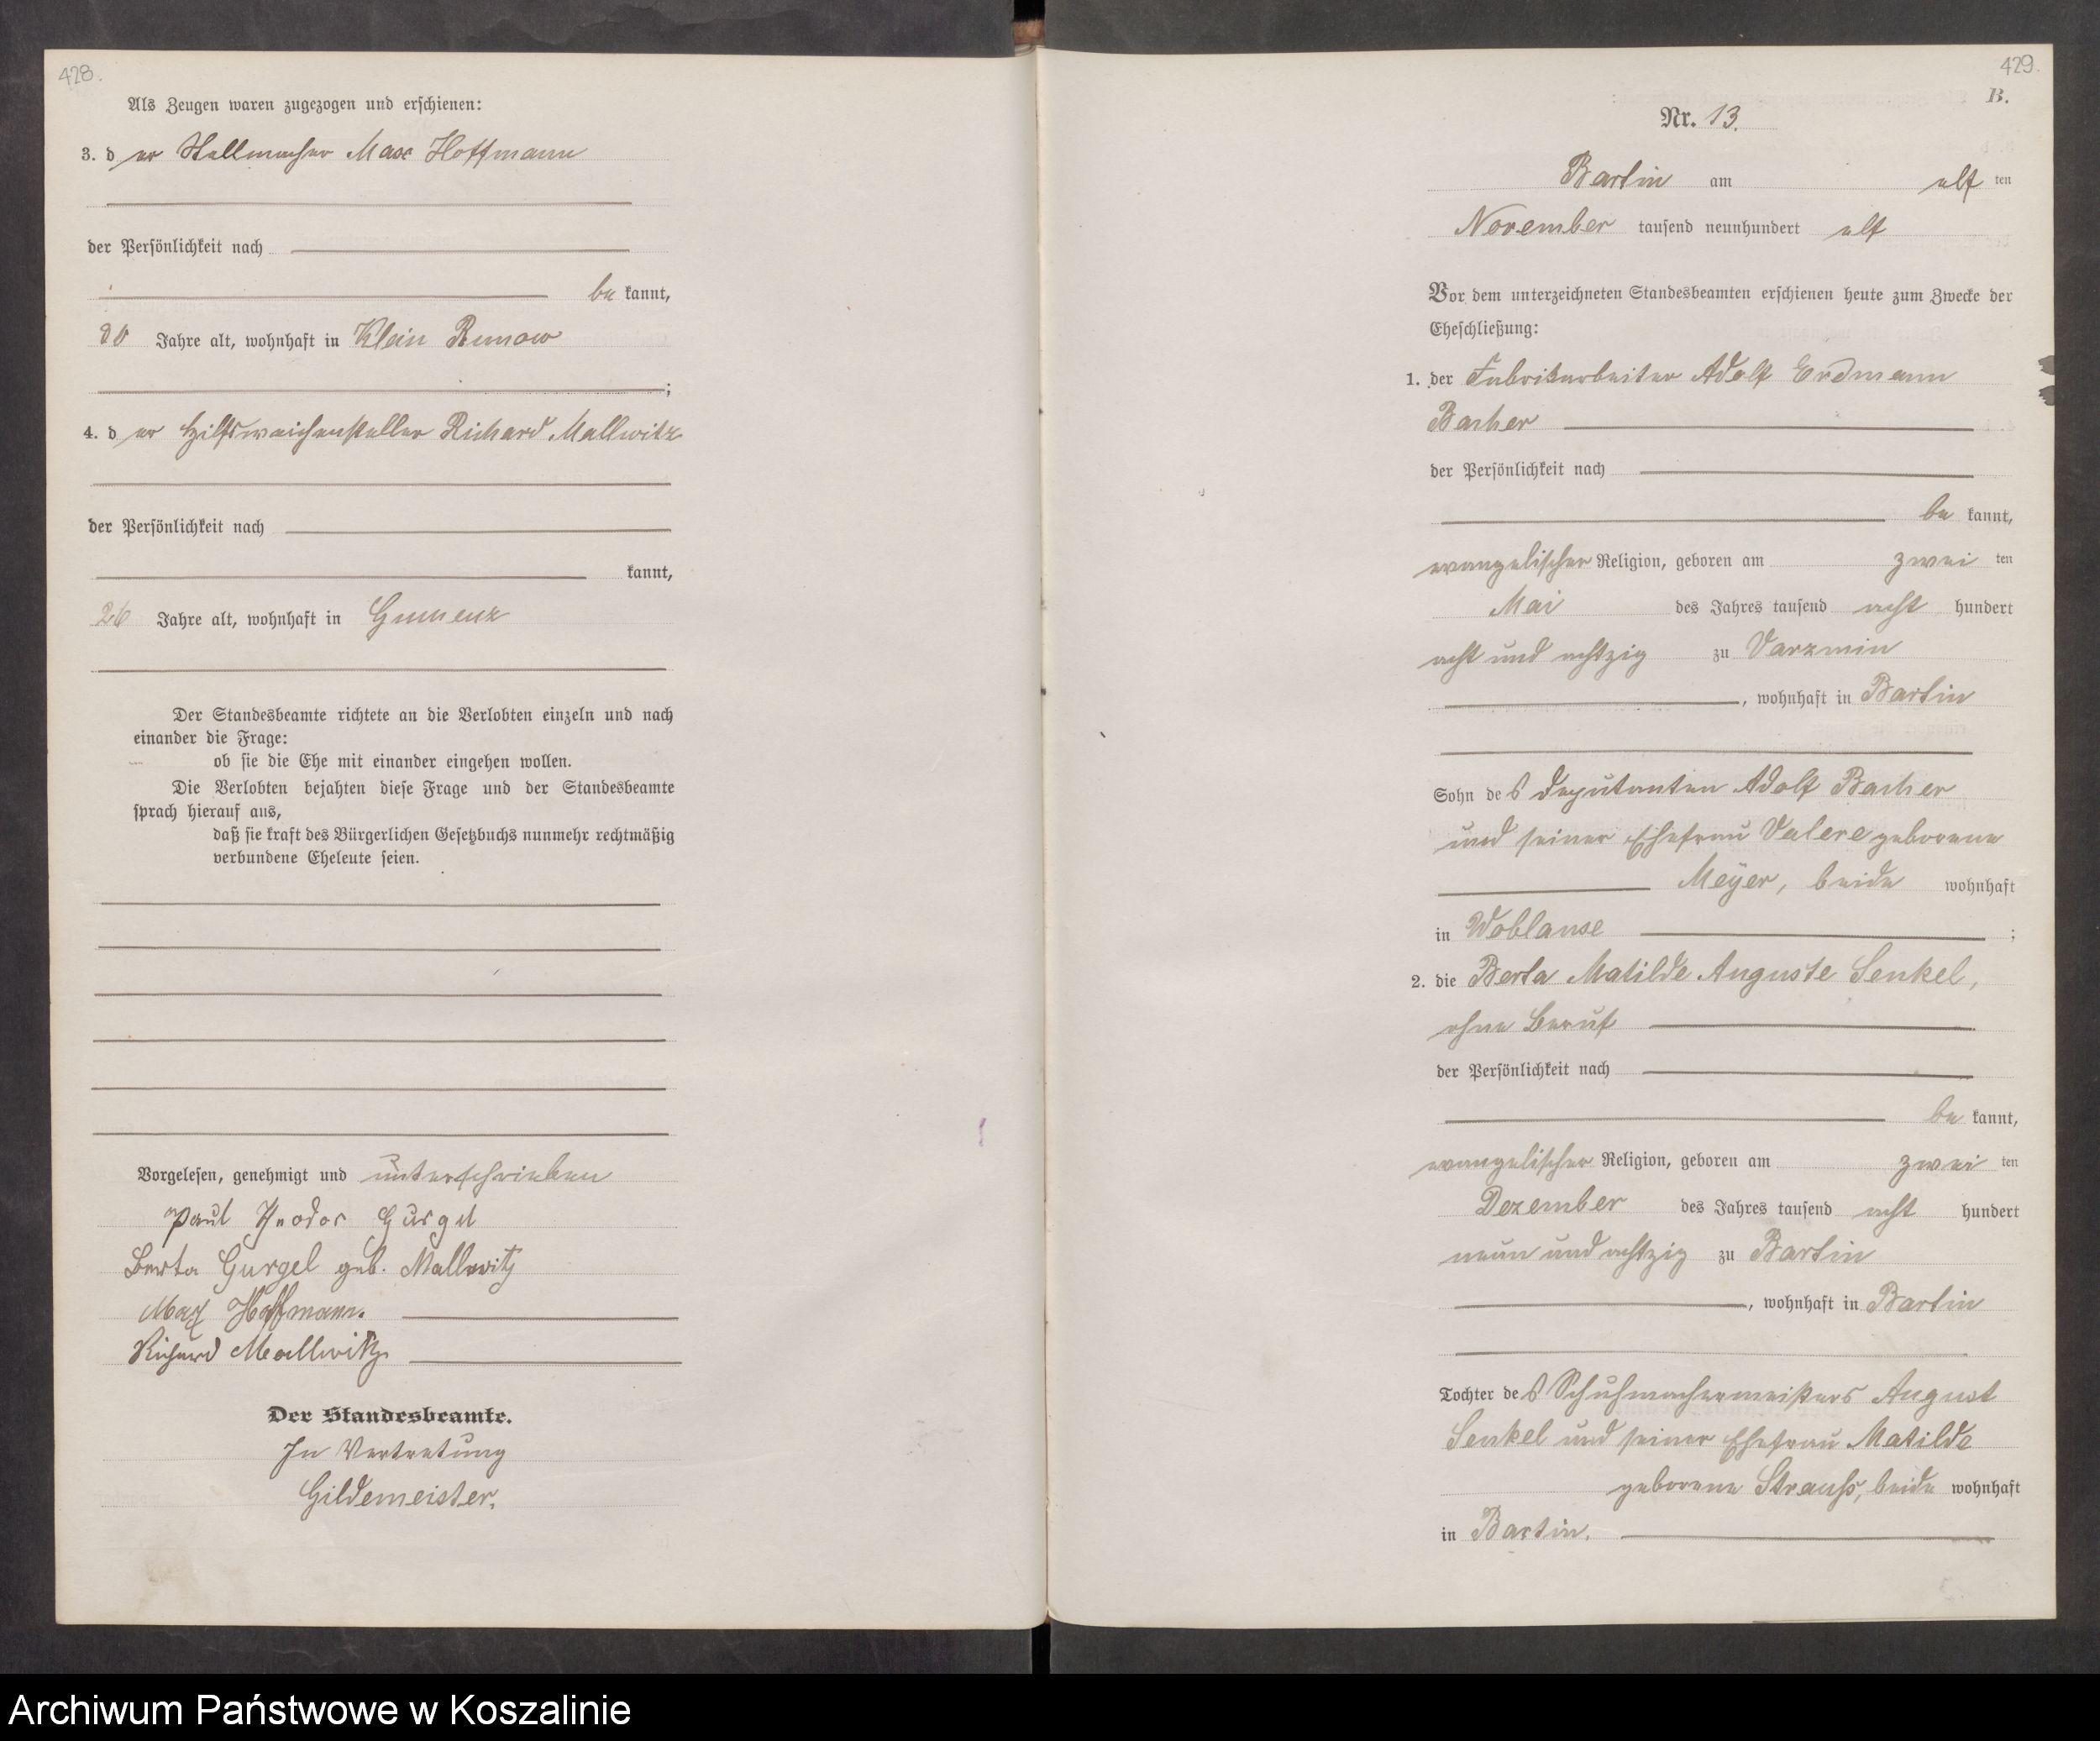 428.
Als Zeugen waren zugezogen und erschienen:
3. d er Stellmacher Max Hoffmann
der Persönlichkeit nach
be kannt,
Jahre alt, wohnhaft in Klein Runow
;
4. d er Hilfsweichensteller Richard Mallwitz
der Persönlichkeit nach
kannt,
26 Jahre alt, wohnhaft in Gumenz
Der Standesbeamte richtete an die Verlobten einzeln und nach
einander die Frage:
ob sie die Ehe mit einander eingehen wollen.
Die Verlobten bejahten diese Frage und der Standesbeamte
sprach hierauf aus,
daß sie kraft des Bürgerlichen Gesetzbuchs nunmehr rechtmäßig
verbundene Eheleute seien.
Vorgelesen, genehmigt und unterschrieben
Paul Theodor Gurgel
Berta Gurgel geb. Mallwitz
Max Hoffmann.
Richard Mallwitz
Der Standesbeamte.
In Vertretung
Gildemeister.
429.
B.
Nr. 13.
Bartin am elf ten
November tausend neunhundert elf
Vor dem unterzeichneten Standesbeamten erschienen heute zum Zwecke der
Eheschließung:
1. der Fabrikarbeiter Adolf Erdmann
Bacher
der Persönlichkeit nach
be kannt,
evangelischer Religion, geboren am zwei ten
Mai des Jahres tausend acht hundert
acht und achtzig zu Varzmin
, wohnhaft in Bartin
Sohn des Deputanten Adolf Bacher
und seiner Ehefrau Valere geborene
Meyer, beide wohnhaft
in Woblanse ;
2. die Berta Matilde Auguste Senkel,
ohne Beruf
der Persönlichkeit nach
be kannt,
evangelischer Religion, geboren am zwei ten
Dezember des Jahres tausend acht hundert
neun und achtzig zu Bartin
, wohnhaft in Bartin
Tochter des Schuhmachermeisters August
Senkel und seiner Ehefrau Matilde
geborene Strauß, beide wohnhaft
in Bartin.
Archiwum Państwowe w Koszalinie